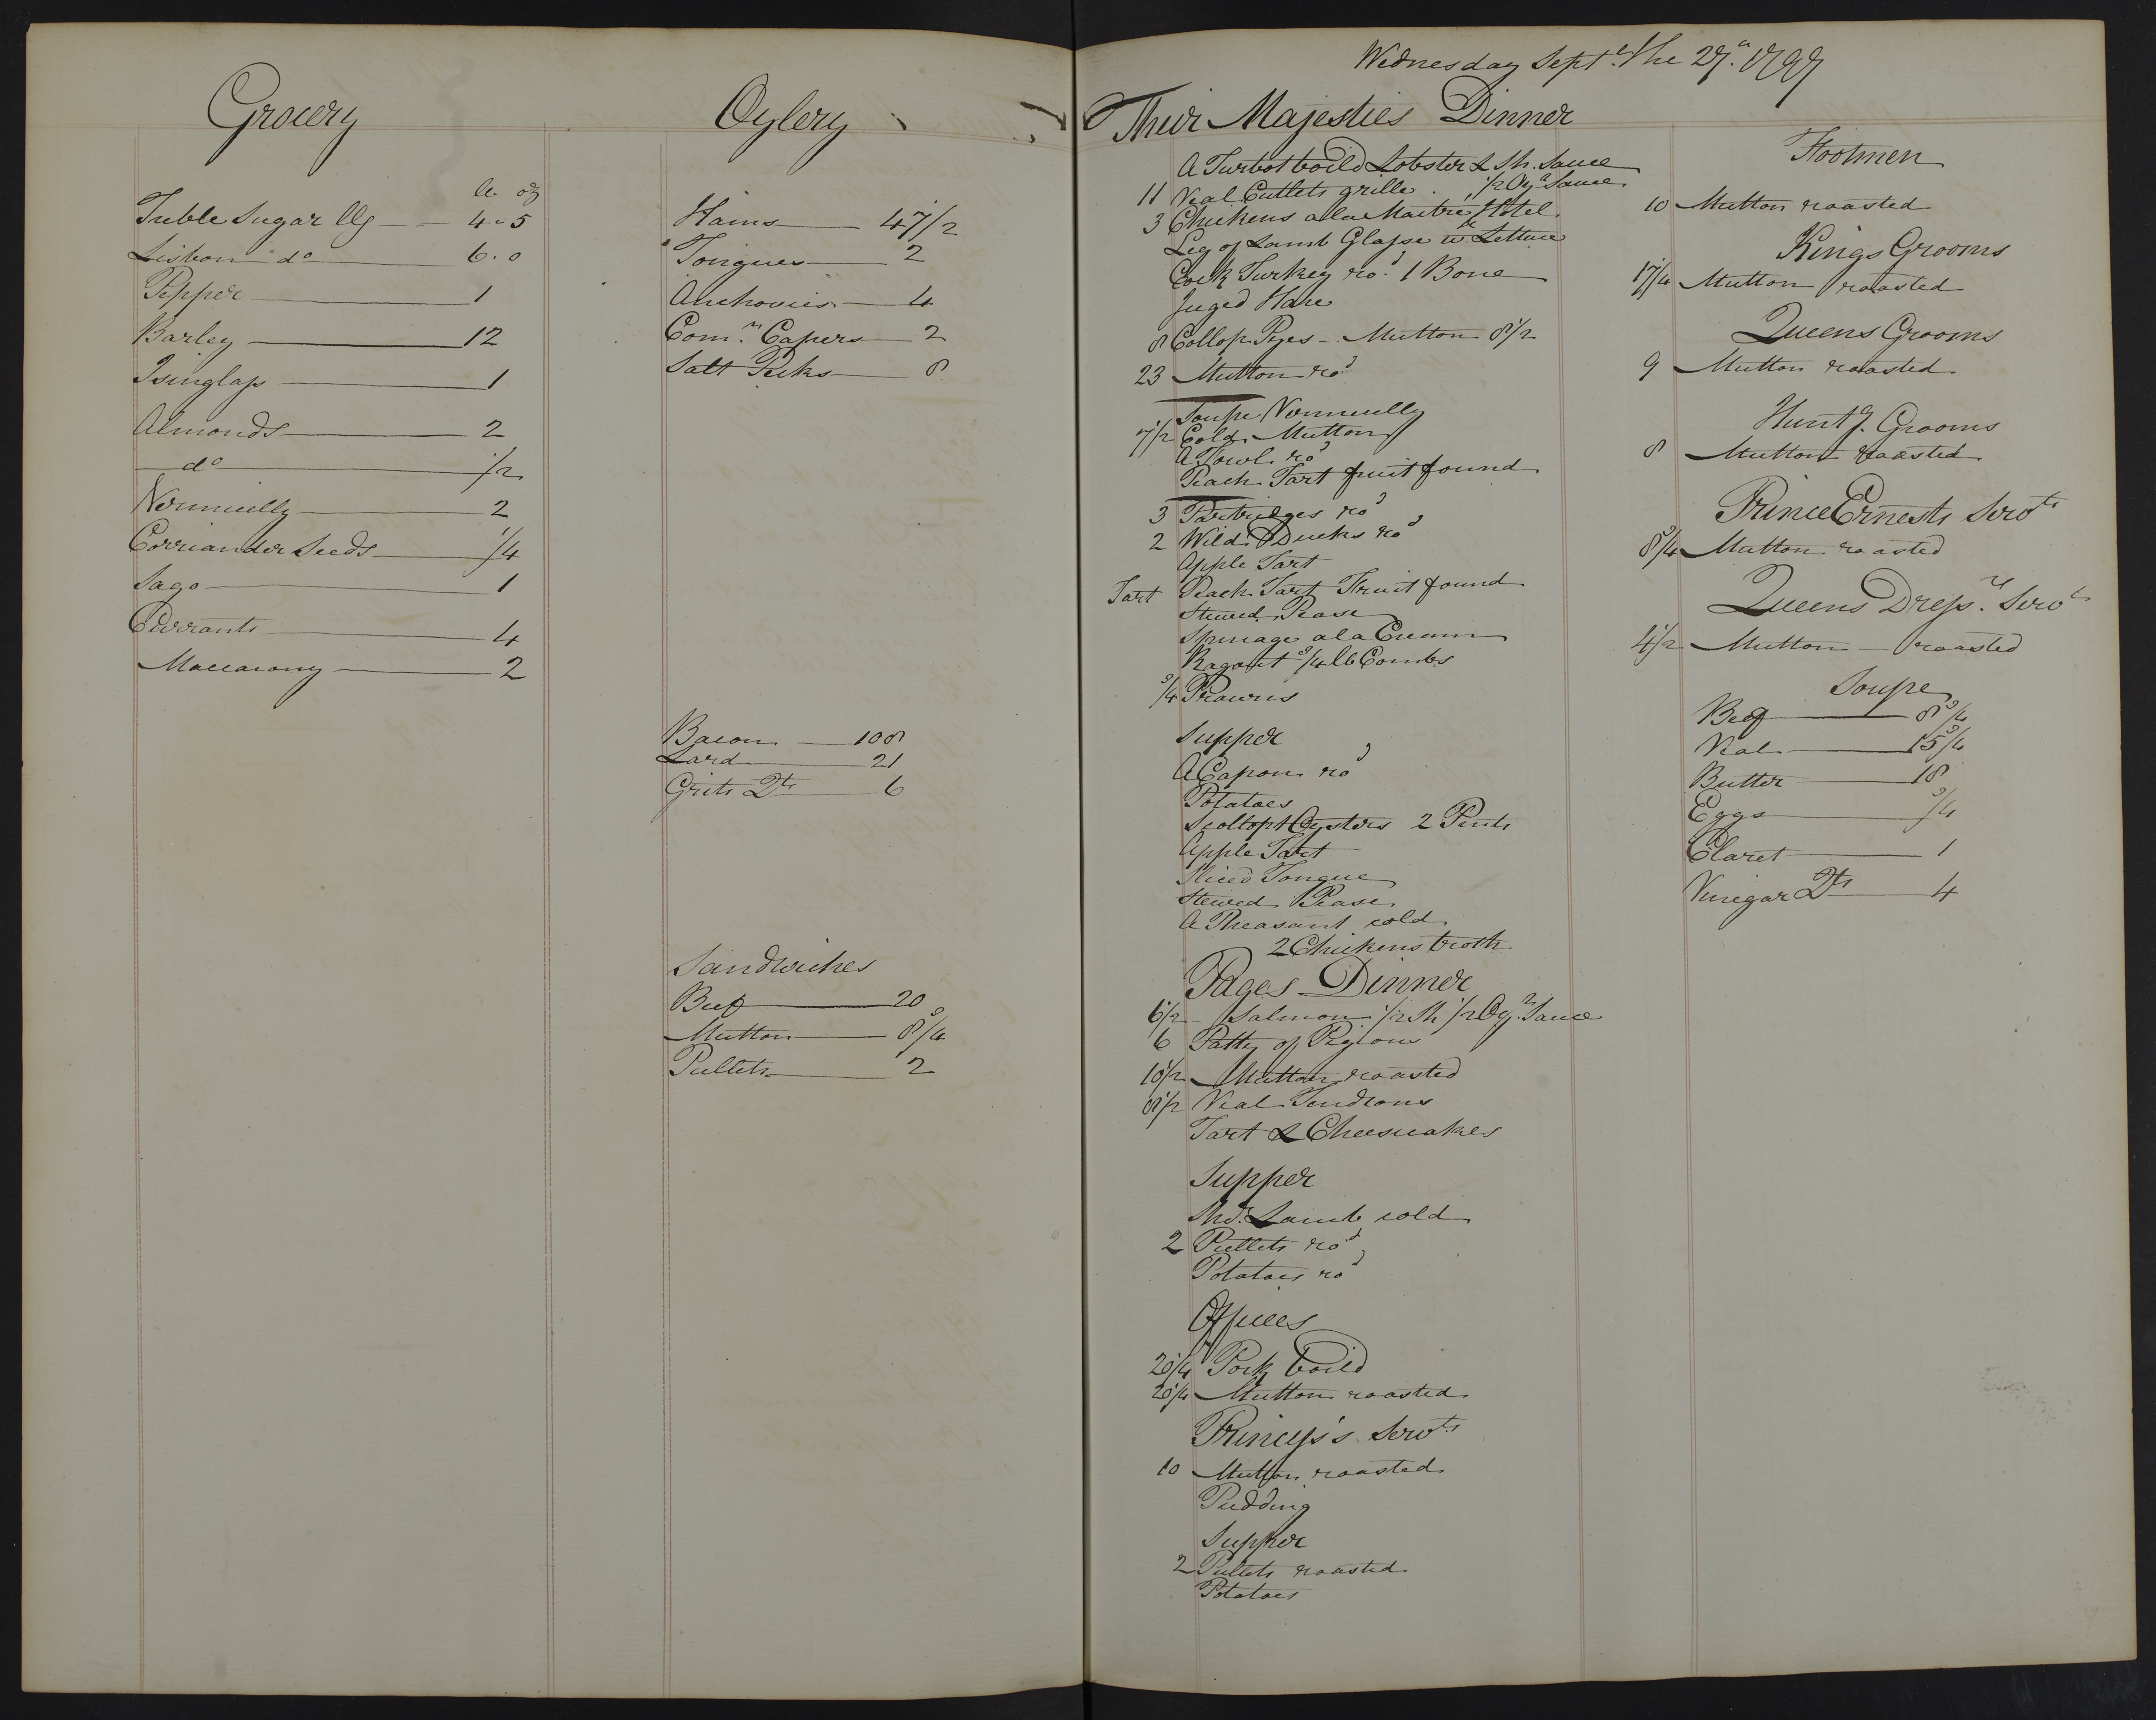 Grocery
lb oz
Treble Sugar llg 4 - 5
Lisbon do 6 . 0
Pepper 1
Barley 12
Isinglass 1
Almonds 2
do 1/2
Vermicelly 2
Corriander Seeds 1/4
Sago 1
Currants 4
Maccarony 2
Oylery
Hams 47 1/2
Tongues 2
Anchovies 4
Comn. Capers 2
Salt Peks 8
Bacon 108
Lard 21
Grits Qts 6
Sandwiches
Beef 20
Mutton 8 3/4
Pullets 2
Wednesday Septr. the 27th. 1797
Their Majesties Dinner
A Turbot boild Lobster & Sh. Sauce
11 Veal Cutlets grille . 1/2 Oyr Sauce
3 Chickens a la Maitre Hotel
Leg of Lamb Glasse wth Lettuce
Cock Turkey rod 1 Bone
Juged Hare
8 Collop Pyes - Mutton 8 1/2
23 Mutton rod
Soupe Vermicelly
7 1/2 Cold Mutton
A Fowl rod
Peach Tart fruit found
3 Partridges rod
2 Wild Ducks rod
Apple Tart
Tart Peach Tart Fruit found
Stewed Pease
Spinage a la Cream
Ragout 3/4 lb Combs
3/4 Prawns
Supper
A Capon rod
Potatoes
Scollopt Oysters 2 Pints
Apple Tart
Sliced Tongue
Stewed Pease
A Pheasant cold
2 Chickens broth
Pages Dinner
6 1/2 Salmon 1/2 Sh 1/2 Oyr. Sauce
6 Patty of Pigions
10 1/2 Mutton roasted
8 1/2 Veal Tendrons
Tart & Cheesecakes
Supper
Shdr. Lamb cold
2 Pullets rod
Potatoes rod
Offices
20 1/4 Pork boild
20 1/4 Mutton roasted
Princess's Servts
10 Mutton roasted
Pudding
Supper
2 Pullets roasted
Potatoes
Footmen
10 Mutton roasted
Kings Grooms
17 1/4 Mutton roasted
Queens Grooms
9 Mutton roasted
Huntg. Grooms
8 Mutton roasted
Prince Ernests Servts
8 3/4 Mutton roasted
Queens Dressrs Servts
4 1/2 Mutton roasted
Soupe
Beef 8 3/4
Veal 15 3/4
Butter 18
Eggs 3/4
Claret 1
Vinegar Qts 4